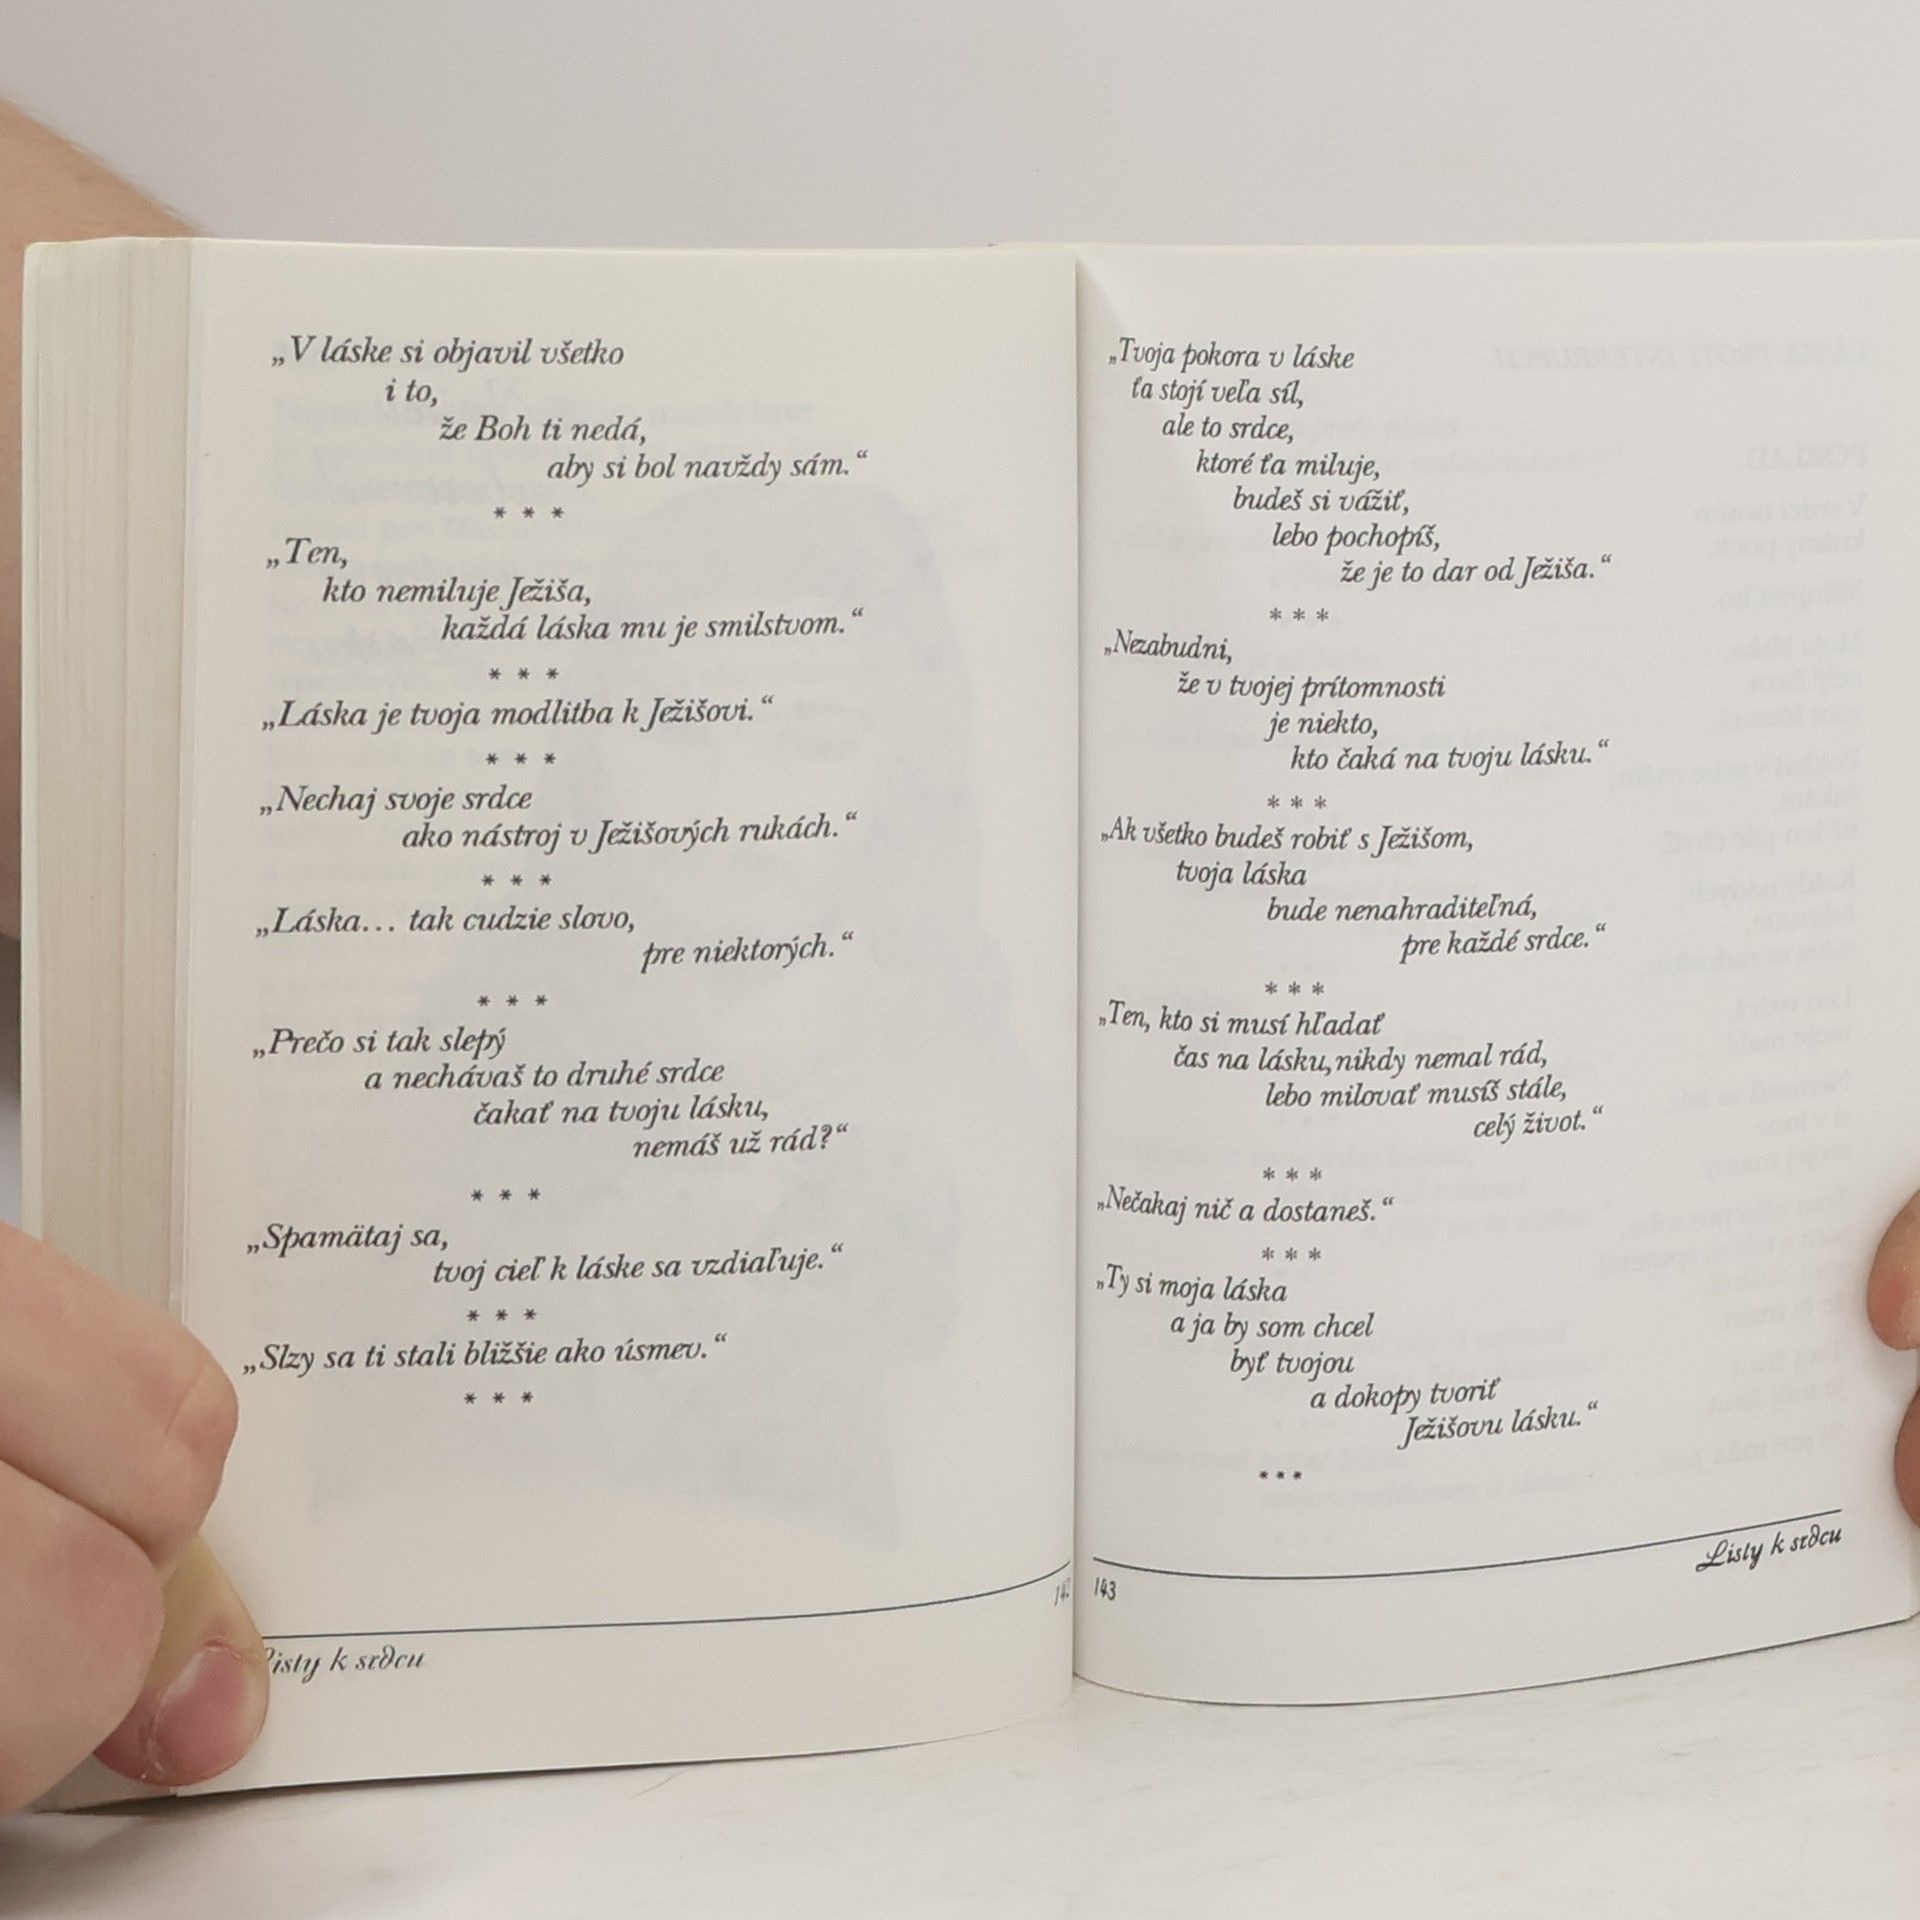 „V láske si objavil všetko
i to,
že Boh ti nedá,
aby si bol navždy sám.“
* * *
„Ten,
kto nemiluje Ježiša,
každá láska mu je smilstvom.“
* * *
„Láska je tvoja modlitba k Ježišovi.“
* * *
„Nechaj svoje srdce
ako nástroj v Ježišových rukách.“
* * *
„Láska... tak cudzie slovo,
pre niektorých.“
* * *
„Prečo si tak slepý
a nechávaš to druhé srdce
čakať na tvoju lásku,
nemáš už rád?“
* * *
„Spamätaj sa,
tvoj cieľ k láske sa vzdiaľuje.“
* * *
„Slzy sa ti stali bližšie ako úsmev.“
* * *
k srdcu
„Tvoja pokora v láske
ťa stojí veľa síl,
ale to srdce,
ktoré ťa miluje,
budeš si vážiť,
lebo pochopíš,
že je to dar od Ježiša.“
* * *
„Nezabudni,
že v tvojej prítomnosti
je niekto,
kto čaká na tvoju lásku.“
* * *
„Ak všetko budeš robiť s Ježišom,
tvoja láska
bude nenahraditeľná,
pre každé srdce.“
* * *
„Ten, kto si musí hľadať
čas na lásku, nikdy nemal rád,
lebo milovať musíš stále,
celý život.“
* * *
„Nečakaj nič a dostaneš.“
* * *
„Ty si moja láska
a ja by som chcel
byť tvojou
a dokopy tvoriť
Ježišovu lásku.“
* * *
Listy k srdcu
143